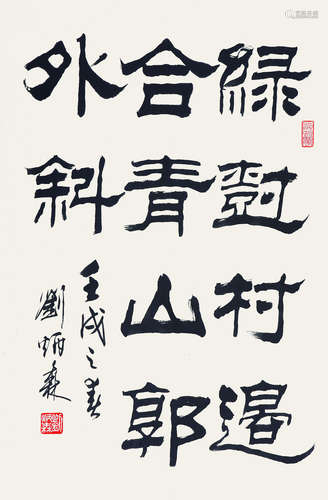 綠樹村邊
合青山郭
外斜
壬戌之春
劉炳森